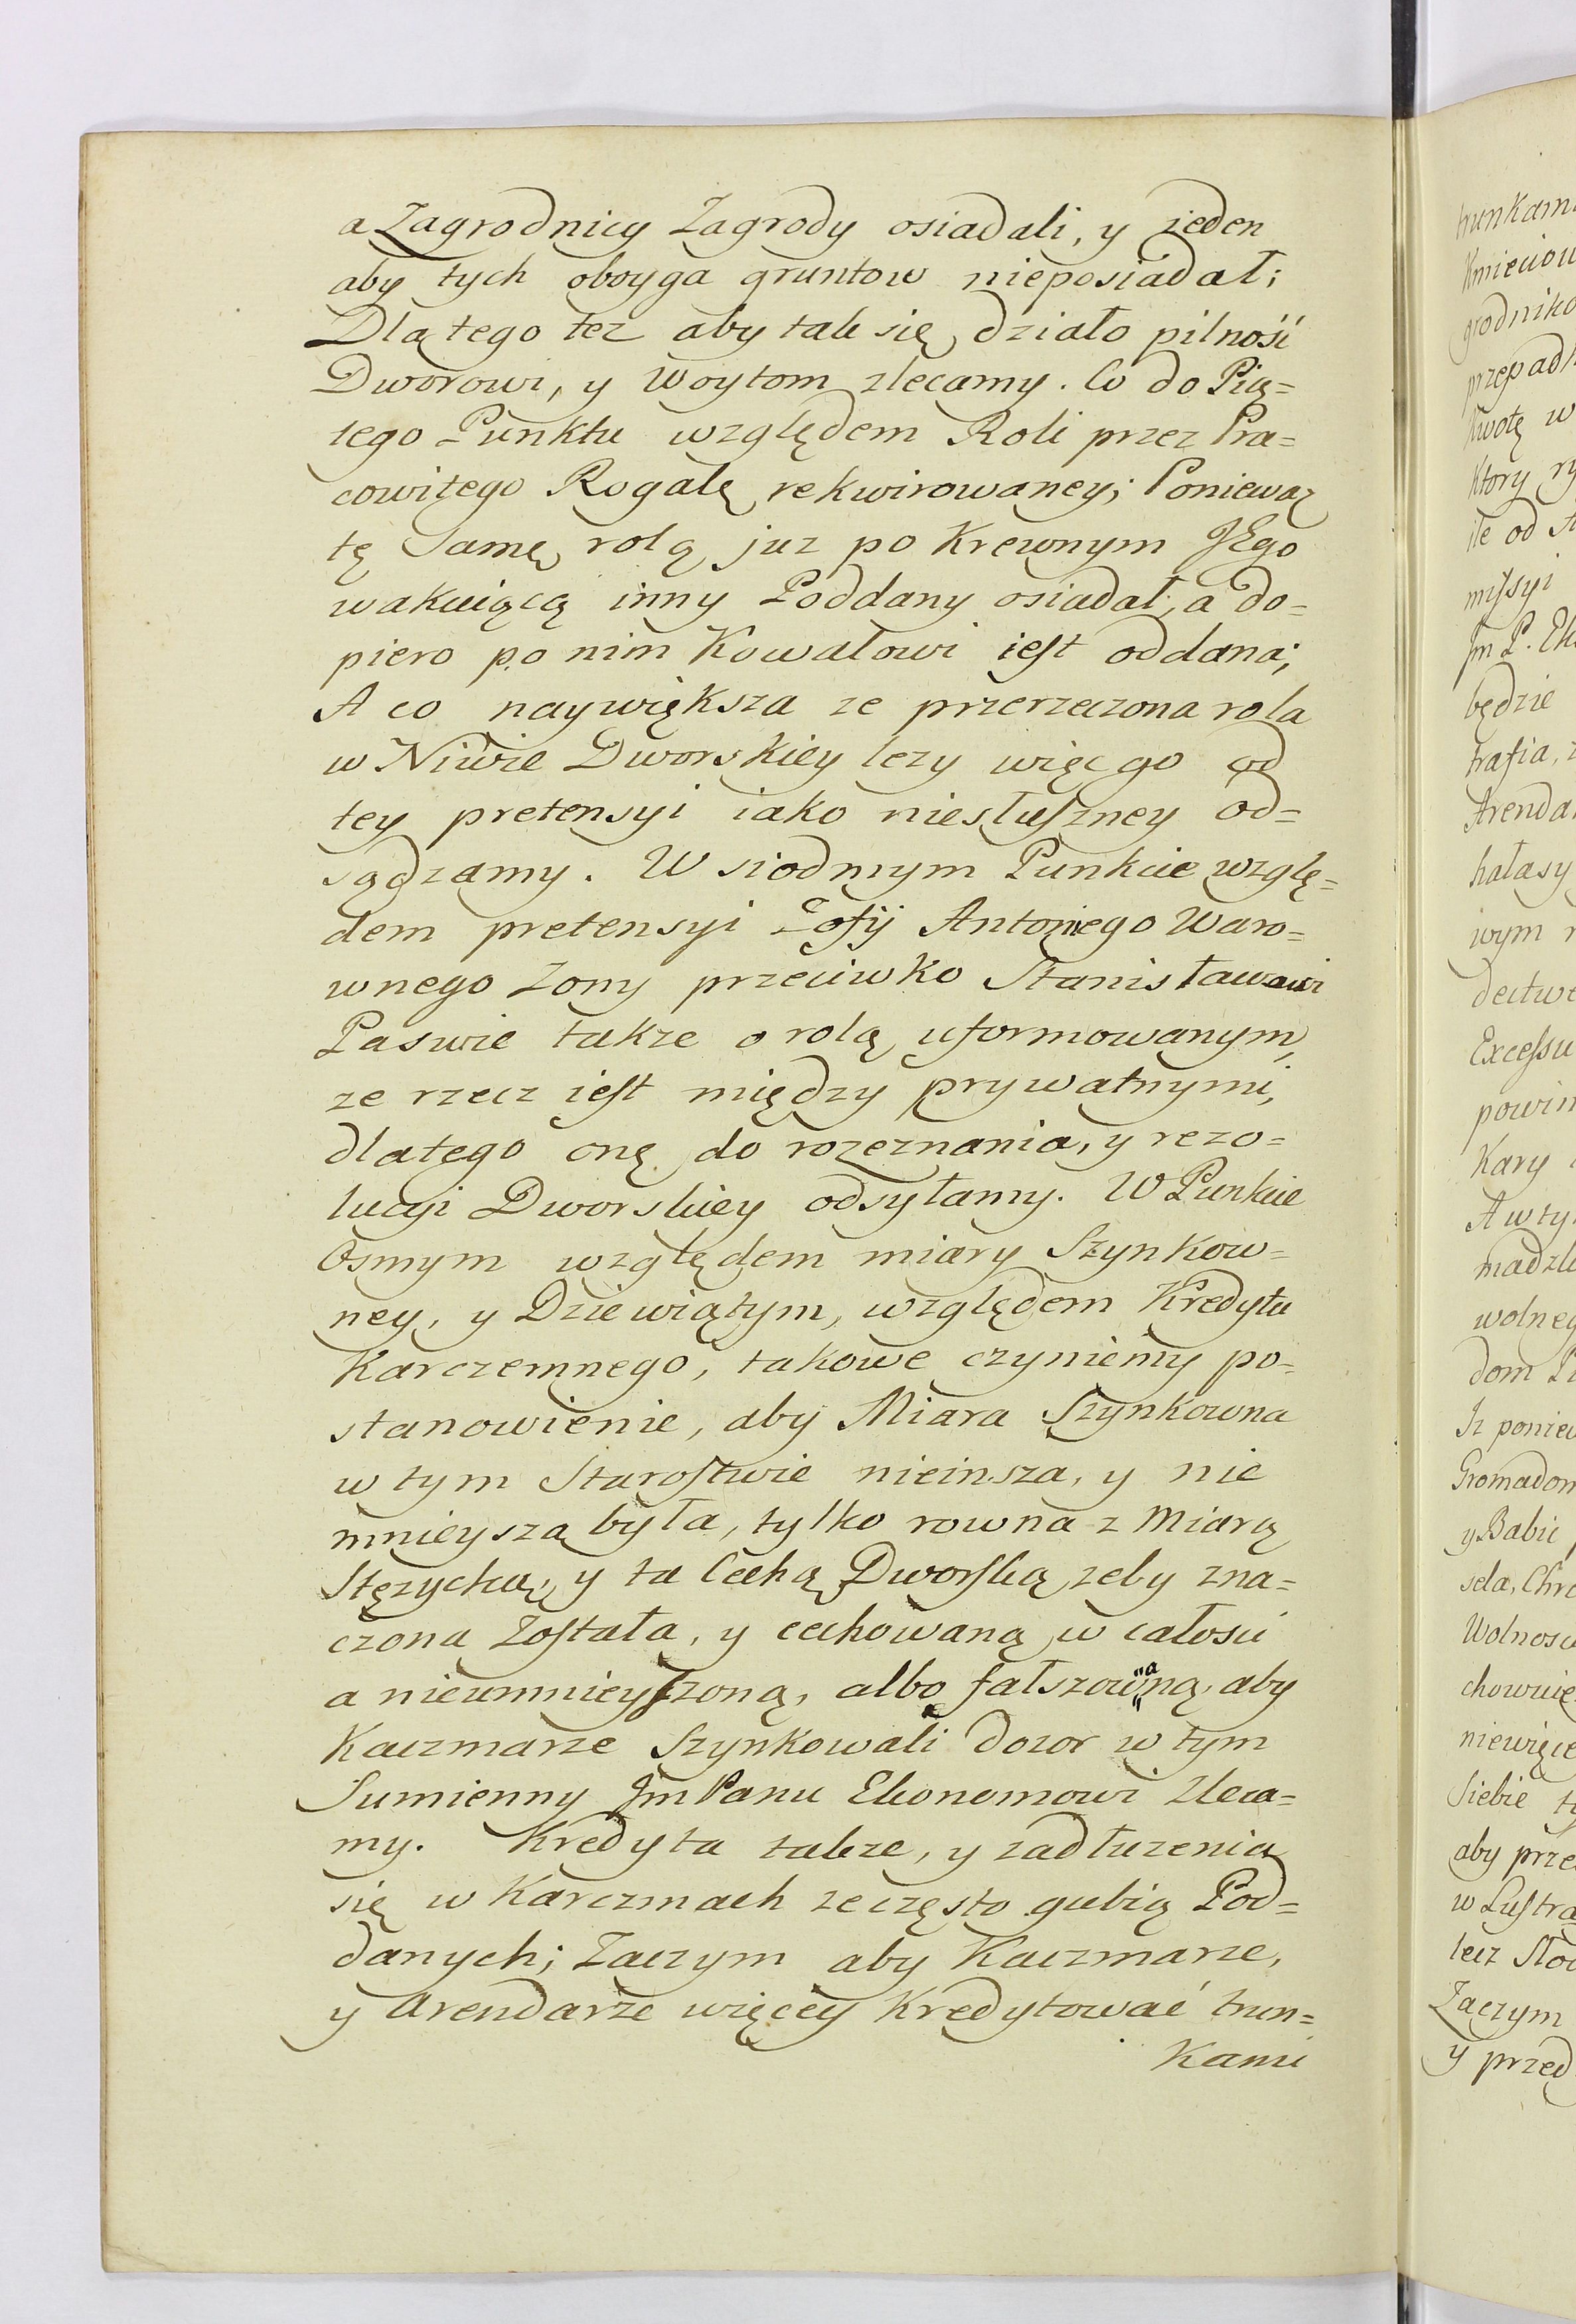 a Zagrodnicy Zagrody osiadali, y ieden
aby tych oboyga gruntow nieposiadał;
Dla tego tez aby tak się działo pilność
Dworowi, y Woytom zlecamy. Co do Pią=
tego Punktu względem Roli przez Pra=
cowitego Rogalę rekwirowaney; Poniewaz
tę Samę rolą juz po Krewnym JEgo
wakuiącą inny Poddany osiadał, a do=
piero po nim Kowalowi iest oddana;
A co naywiększa ze przerzeczona rola
w Niwie Dworskiey lezy więc go od
tey pretensyi iako niesłuszney od=
sądzamy. W siodmym Punkcie wzglę=
dem pretensyi Zofij Antoniego Waro=
wnego Zony przeciwko Stanisławowi
Paswie takze o rolą uformowanym,
ze rzecz iest między prywatnymi,
dlatego onę do rozeznania, y rezo=
lucyi Dworskiey odsyłamy. W Punkcie
Osmym względem miary Szynkow=
ney, y Dziewiątym, względem Kredytu
Karczemnego, takowe czyniemy po=
stanowienie, aby Miara Szynkowna
w tym Starostwie nieinsza, y nie
mnieysza była, tylko rowna z Miarą
Stęzycką, y ta Cechą Dworską zeby zna=
czona Została, y cechowaną w całosci
a nieumnieyszoną, albo fałszowaną, aby
Kaczmarze Szynkowali dozor w tym
Sumienny Jm Panu Ekonomowi Zleca=
my. Kredyta takze, y zadłuzenia
się w Karczmach ze często gubią Pod=
danych; Zaczym aby Kaczmarze,
y Arendarze więcey Kredytować trun=
Kami
trunkami
Kmieciow
grodniko
przepad
Kwotę w
Ktory ry
ile od st
missyi
Jm P. Ek
będzie
trafia, z
Arenda
hałasy
iwym
dectwe
Excessu
powin
Kary
A w ty
madzk
wolneg
dom P
Iz poniew
Gromadom
y Babic
sela, Chr
Wolnosc
chowuię
niewięce
Siebie ty
aby prze
w Lustra
lecz Sło
Zaczym
y przed